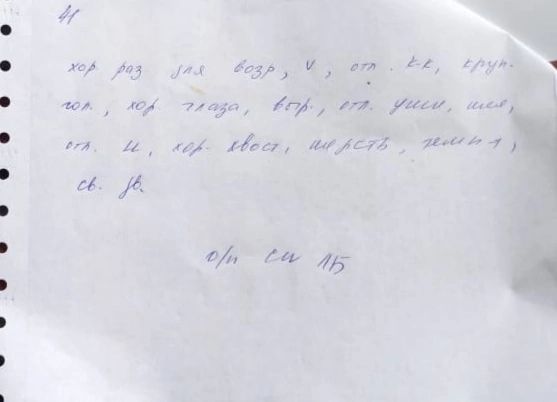 41
хор раз для возр, V, отл. к-к, круп.
гол., хор. глаза, выр., отл. уши, шея,
отл. U, хор. хвост, шерсть, темп-т,
св. дв.
о/п СW ЛБ